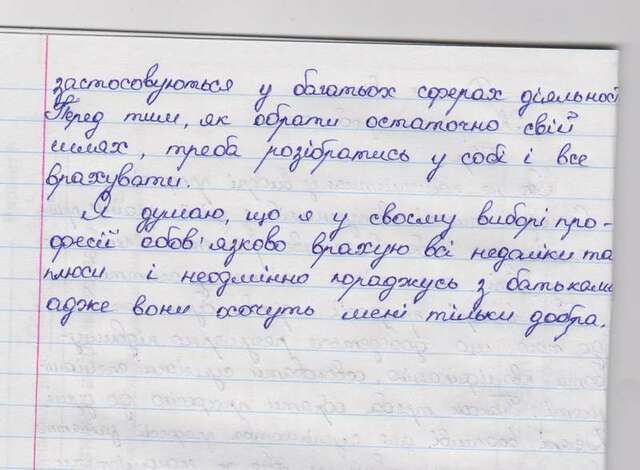 застосовуються у багатьох сферах діяльност
Перед тим, як обрати остаточно свій
шлях, треба розібратись у собі і все
врахувати.
Я думаю, що я у своєму виборі про-
фесії обов'язково врахую всі недоліки та
плюси і неодмінно пораджусь з батьками
адже вони хочуть мені тільки добра.